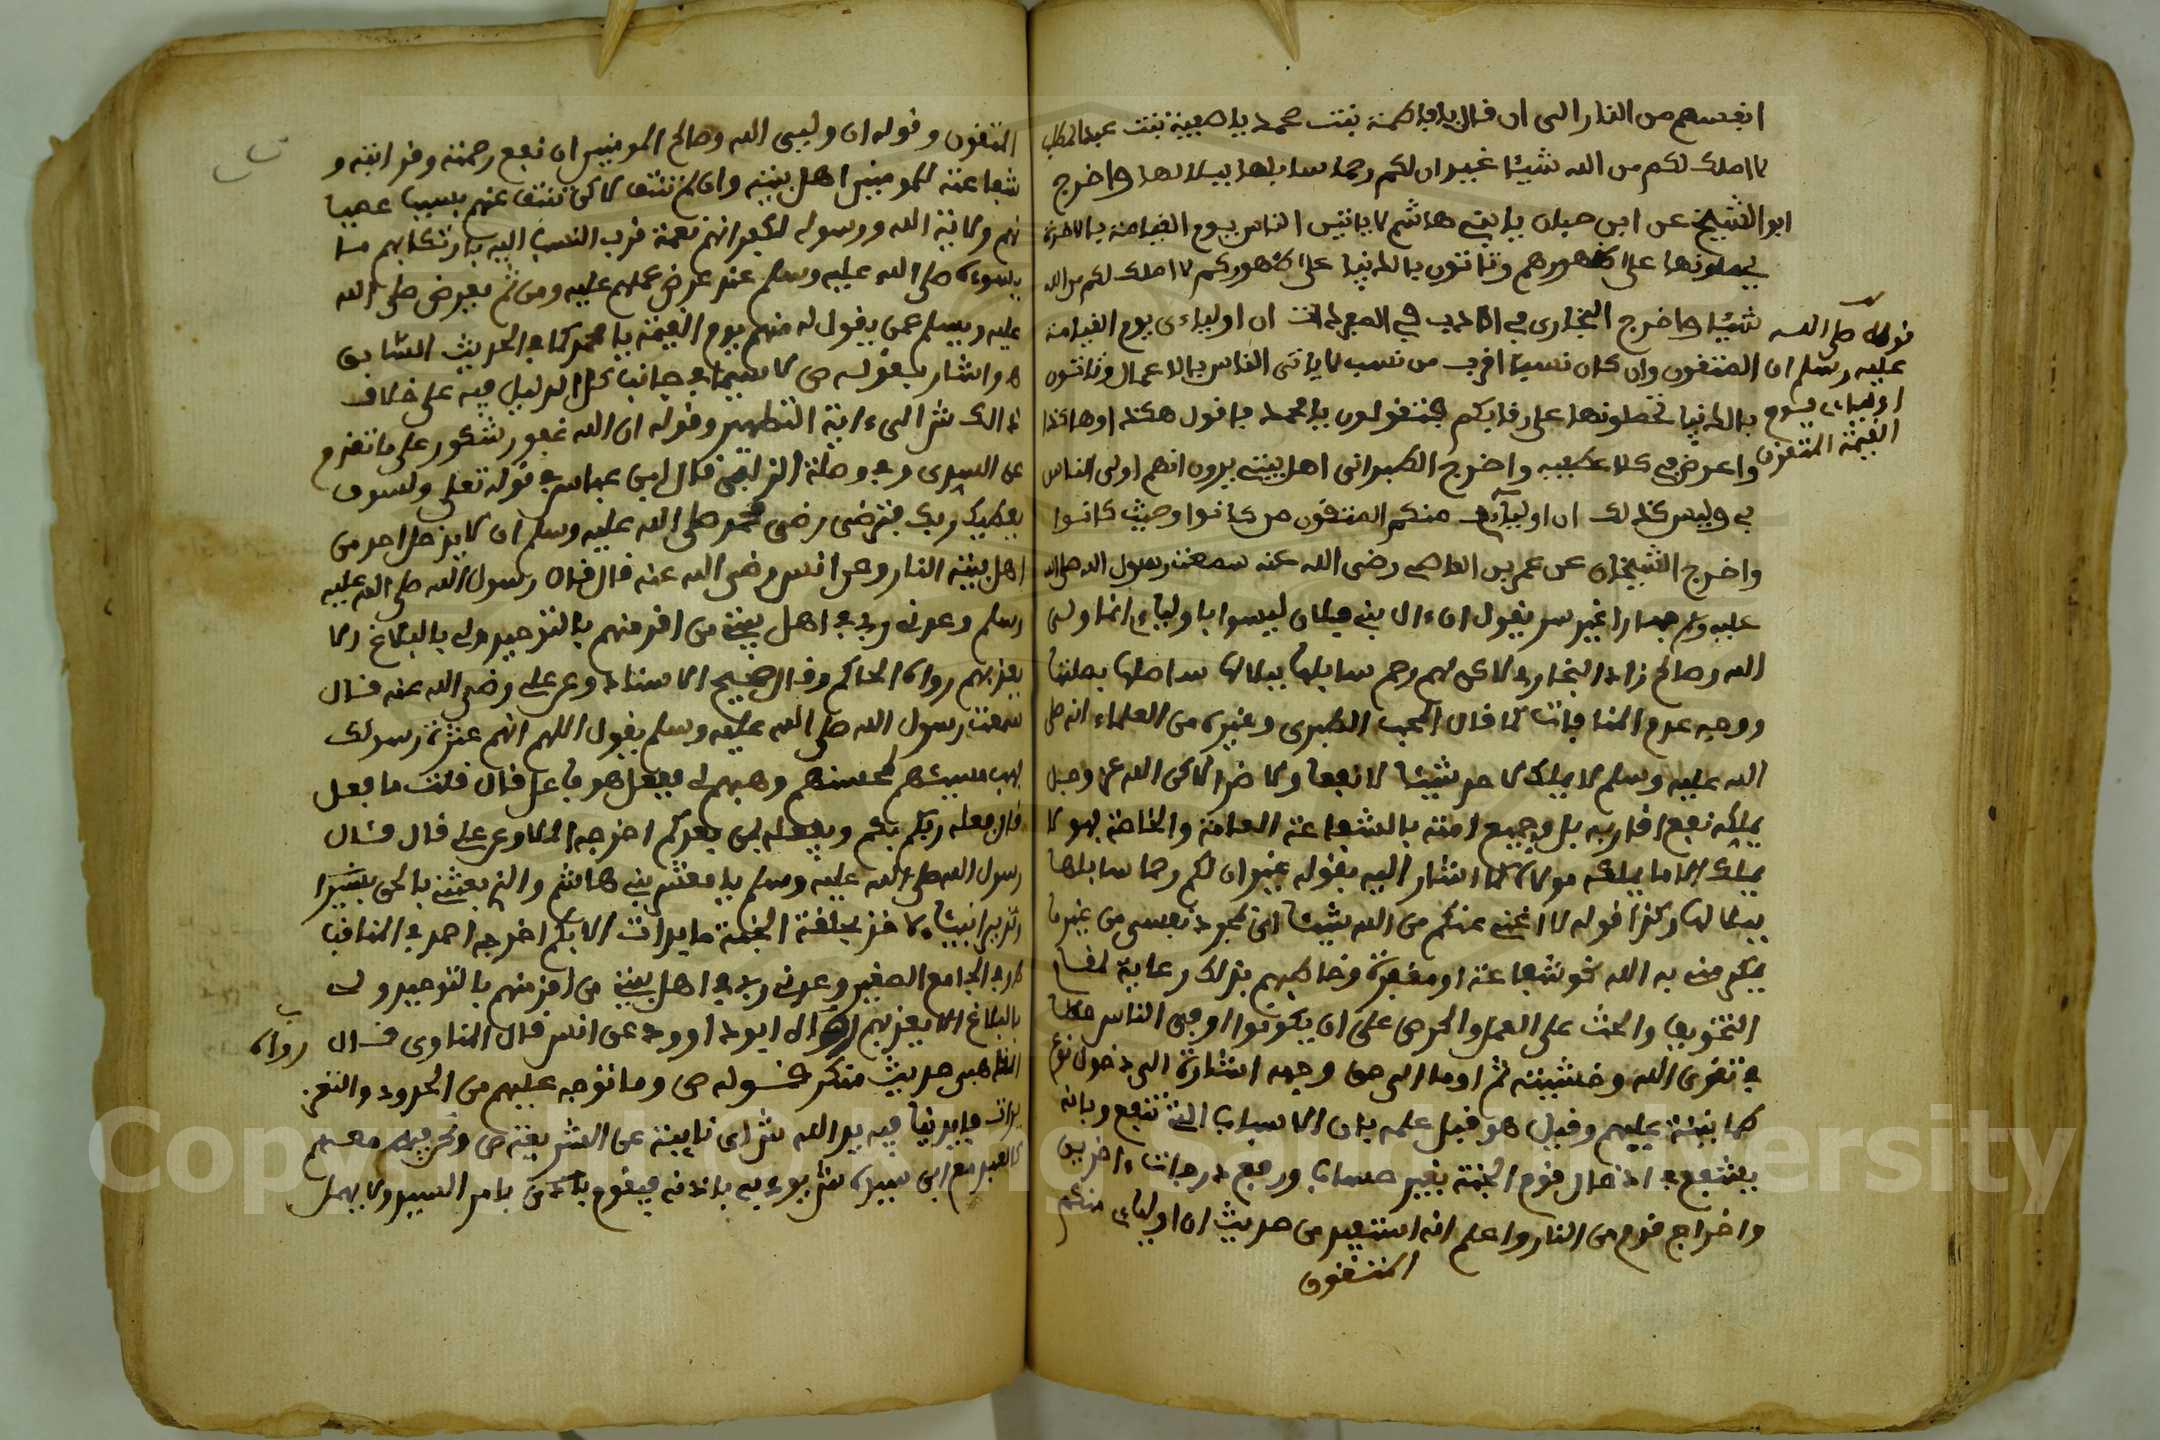 انفسهم من النار الى ان قال يا فاطمة بنت محمد يا صفية بنت عبد المطلب
لا املك لكم من الله شيئا غير ان لكم رحما سابلها ببلالها واخرج
ابو الشيخ عن ابن حبان يا بني هاشم لا ياتين الناس يوم القيامة بالاخرة
يحملونها على ظهورهم وتاتون بالدنيا على ظهوركم لا املك لكم من الله
شيئا واخرج البخاري في الادب المفرد ان اوليائي يوم القيامة
المتقون وان كان نسب اقرب من نسب لا ياتي الناس بالاعمال وتاتون
بالدنيا تحملونها على رقابكم فتقولون يا محمد فاقول هكذا وهاكذا
واعرض في كلا عطفيه واخرج الطبراني اهل بيتي يرون انهم اولى الناس
بي وليس كذلك ان اوليائي منكم المتقون من كانوا وحيث كانوا
واخرج الشيخان عن عمر بن العاصي رضي الله عنه سمعت رسول الله صلى الله
عليه وسلم جهارا غير سر يقول ان ءال بني فلان ليسوا باولياء انما وليي
الله وصالح زاد البخاري لاكن لهم رحم سابلها ببلالها ساصلها بصلتها
ووجه عدم المنافات كما قال المحب الطبري وغيره من العلماء انه صلى
الله عليه وسلم لا يملك لاحد شيئا لا نفعا ولا ضرا لاكن الله عز وجل
يملكه نفع اقاربه بل وجميع امته بالشفاعة العامة والخاصة فهو لا
يملك الا ما يملكه مولاه كما اشار اليه بقوله غير ان لكم رحما سابلها
ببلالها وكذا قوله لا اغني عنكم من الله شيئا اي بمجرد نفسي من غير ما
يكرمني به الله نحو شفاعة او مغفرة وخاطبهم بذلك رعاية لمقام
التخويف والحث على العمل والحرص على ان يكونوا اوفى الناس حظا
في تقوى الله وخشيته ثم اوما الى حق رحمه اشارة الى دخول نوع
طمانينة عليهم وقيل هو قبل علمه بان الانساب التي تنفع وبانه
يشفع في ادخال قوم الجنة بغير حساب ورفع درجات ءاخرين
واخراج قوم من النار واعلم انه استفيد من حديث ان اوليائي منكم
المتقون
قوله صلى الله
عليه وسلم ان
اوليائي يوم
القيمة المتقون
المتقون وقوله ان وليي الله وصالح المومنين ان نفع رحمته وقرابته و
شفاعته للمومنين اهل بيته وان لم تنتف لاكن تنتف عنهم بسبب عصيا
نهم ولاية الله ورسوله لكفرانهم نعمة قرب النسب اليه بارتكابهم ما
يسوءه صلى الله عليه وسلم عند عرض عملهم عليه ومن ثم يعرض صلى الله
عليه وسلم عمن يقول له منهم يوم القيمة يا محمد كما في الحديث السابق
واشار بقوله ص لا سيما في جانب كل الدليل فيه على خلاف
ذالك ش الى ءاية التطهير وقوله ان الله غفور شكور على ما تقدم
عن السدي وفي قال ابن عباس في قوله تعلى ولسوف
يعطيك ربك فترضى رضي محمد صلى الله عليه وسلم ان لا يدخل احد من
اهل بيته النار وعن انس رضي الله عنه قال قال رسول الله صلى الله عليه
وسلم وعدني ربي في اهل بيتي من اقر منهم بالتوحيد ولي بالبلاغ الا
يعذبهم رواه الحاكم وقال صحيح الاسناد وعن علي رضي الله عنه قال
سمعت رسول الله صلى الله عليه وسلم يقول اللهم انهم عترة رسولك
فهب مسيئهم لمحسنهم وهبهم لي ففعل هو فاعل قال قلت ما فعل
قال فعله ربكم بكم ويفعله بمن بعدكم اخرجه الملا وعن علي قال قال
رسول الله صلى الله عليه وسلم يا معشر بني هاشم والذي بعثني بالحق بشيرا
ونذيرا لو اخذت بحلقة الجنة ما بدات الا بكم اخرجه احمد في المناقب
وفي الجامع الصغير وعدني ربي في اهل بيتي من اقر منهم بالتوحيد ولي
بالبلاغ الا يعذبهم ابو داوود عن انس قال المناوي قال
الذهبي حديث منكر قوله ص وما توجه عليهم من الحدود والتعز
يرات فايدينا فيه يد الله ش اي نايبة عن الشريعة ص ونحن فيه معهم
كالعبد مع ابن سيده ش يودبه باذنه فيقوم بامر السيد ولا يهمل
رواه